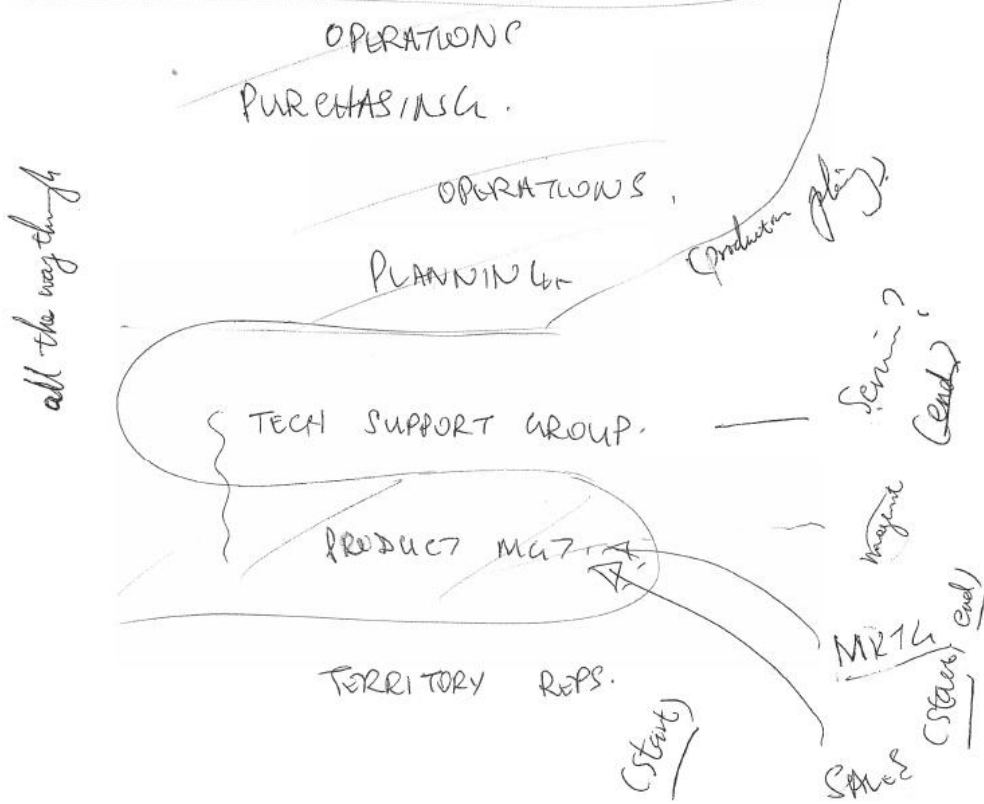 OPERATIONS
PURCHASING.
OPERATIONS.
PLANNING
(production
all the way through
TECH SUPPORT GROUP.
(end)
PRODUCT MGT.
MRTG
(start, end)
TERRITORY REPS.
(start)
SALES